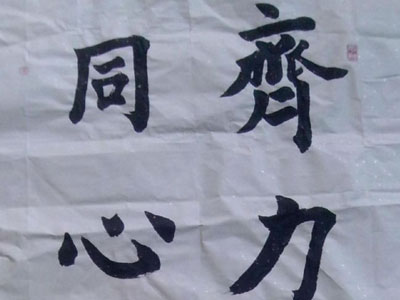 齊力
同心